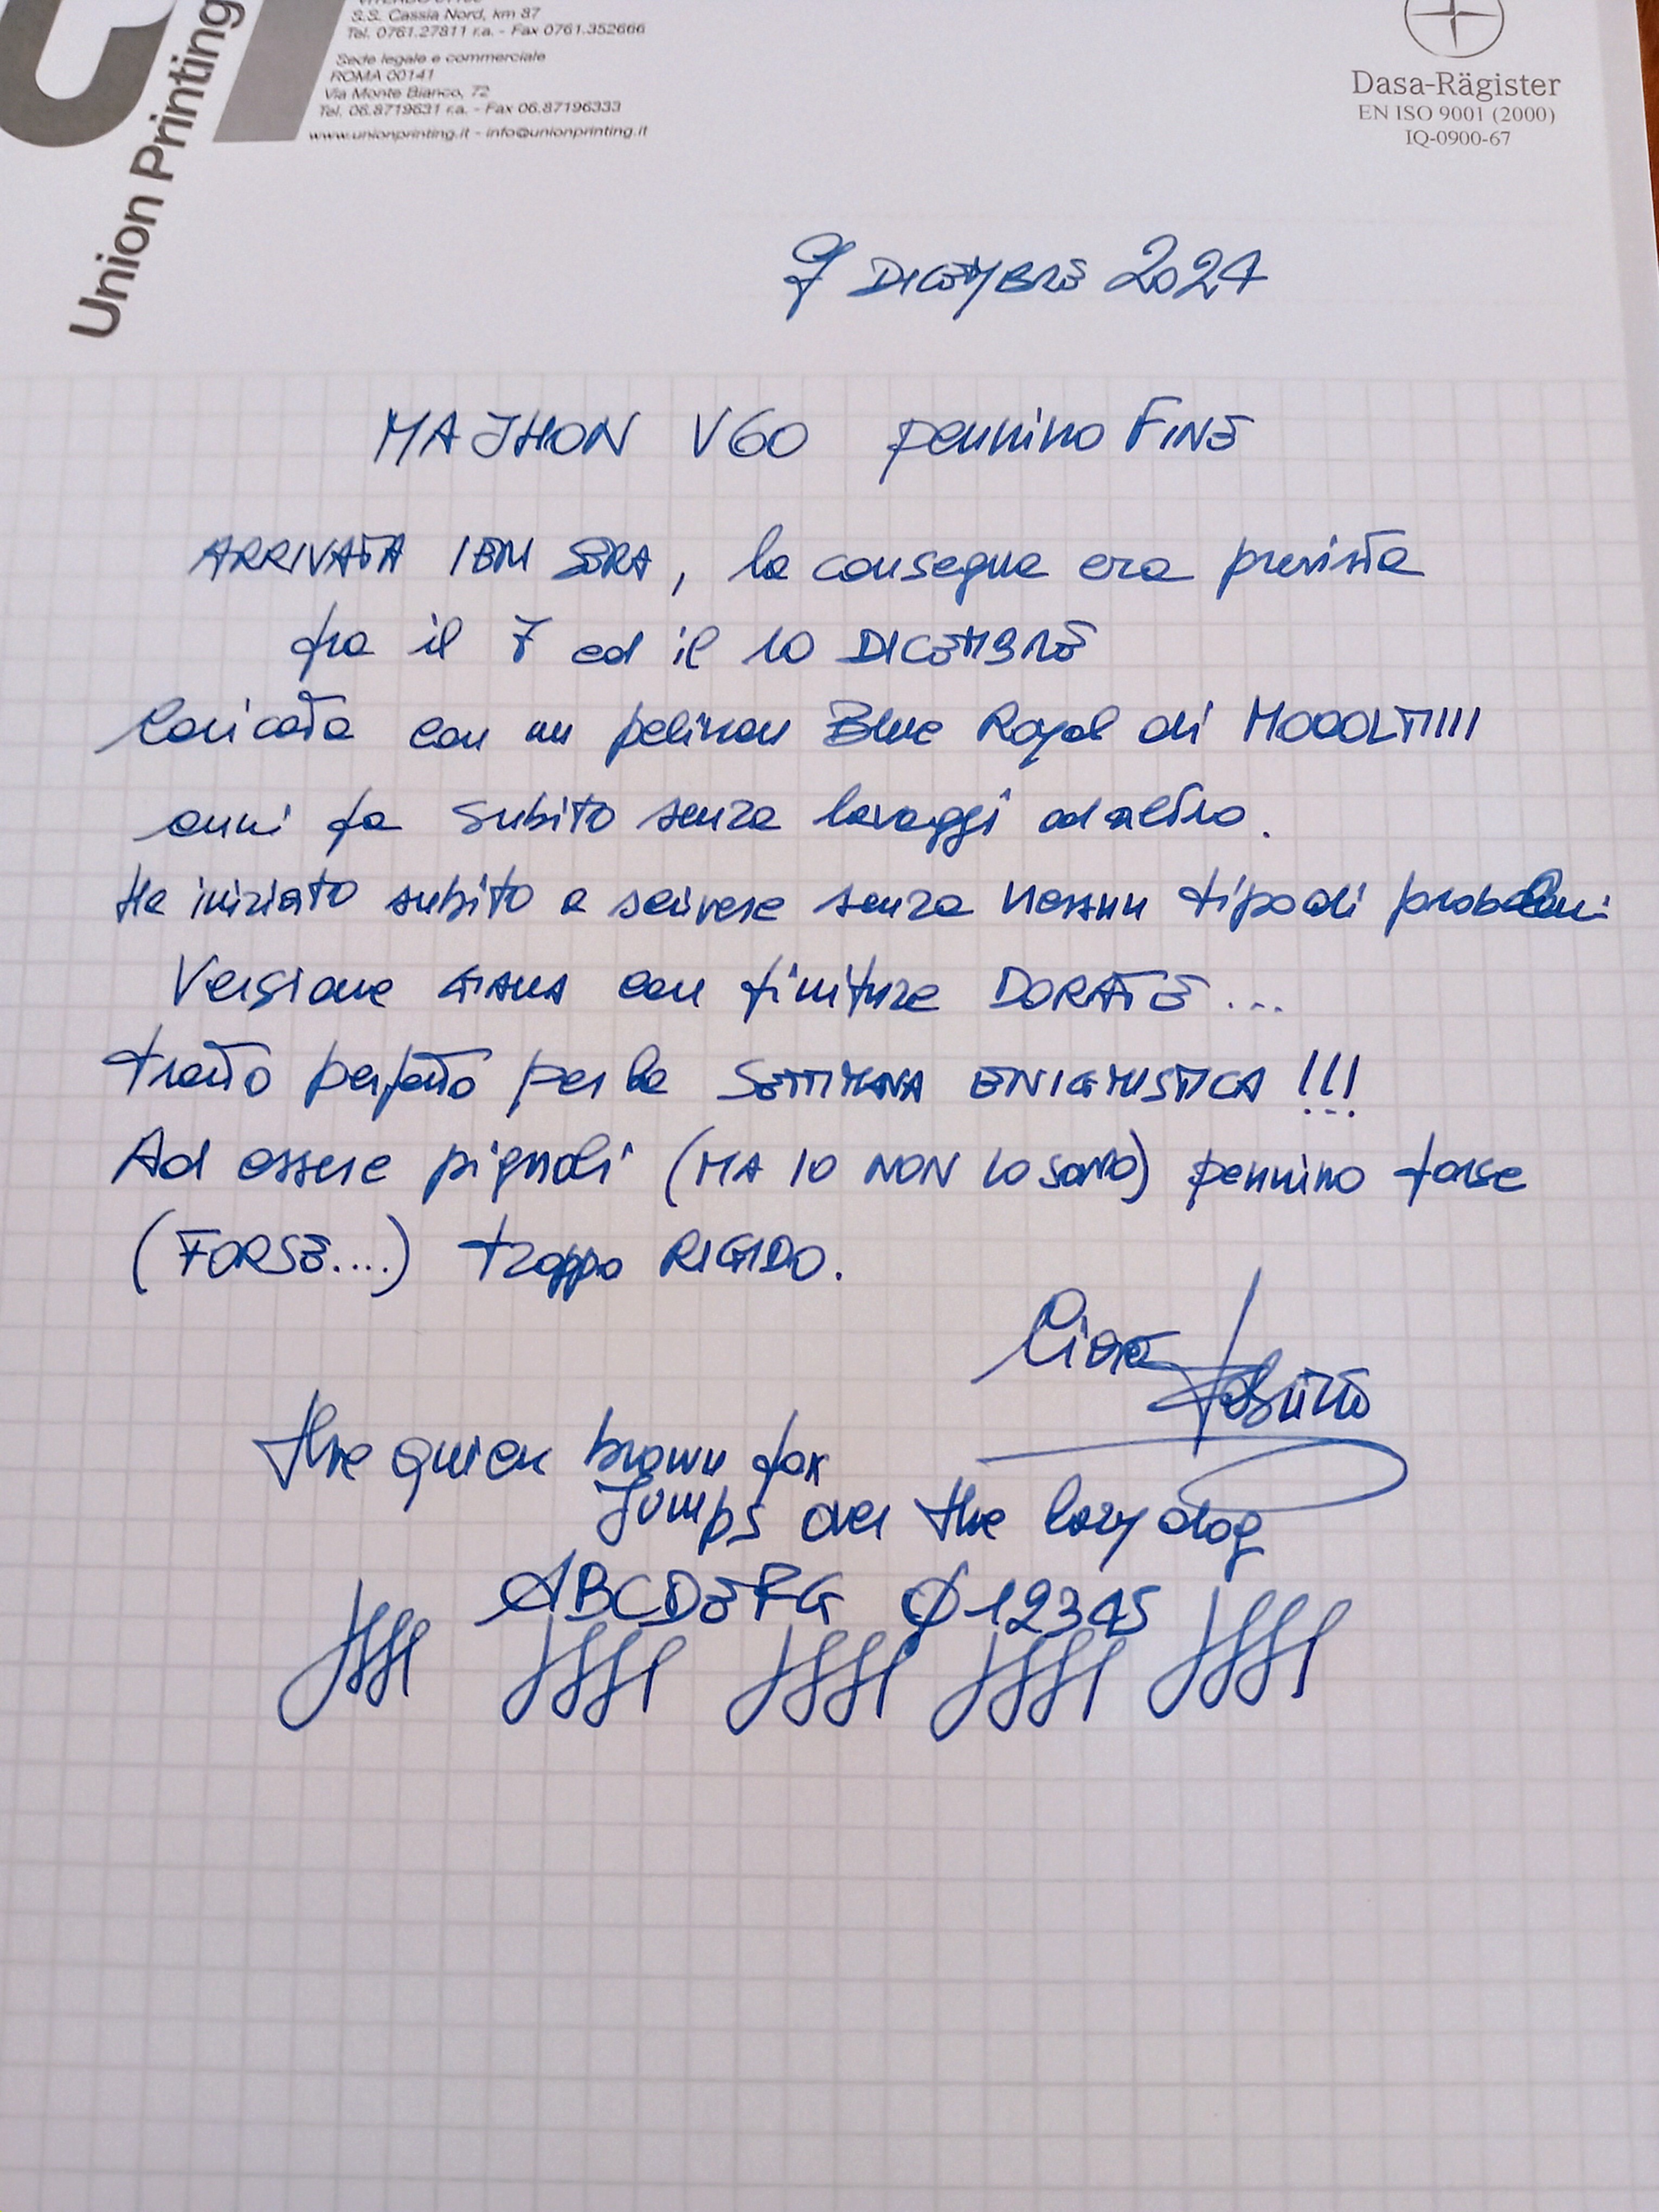 Union Printing
S.S. Cassia Nord, km 87
Tel. 0761.27811 r.a. - Fax 0761.352666
Sede legale e commerciale
ROMA 00141
Via Monte Bianco, 72
Tel. 06.8719631 r.a. - Fax 06.87196333
www.unionprinting.it - info@unionprinting.it
Dasa-Rägister
EN ISO 9001 (2000)
IQ-0900-67
DICEMBRE 2024
MAJHON V60 pennino FINE
ARRIVATA IERI SERA, la consegna era prevista
fra il 7 ed il 10 DICEMBRE
Caricata con un pelikan Blue Royal di MOOOLTIIII
anni fa subito senza lavaggi od altro.
Ha iniziato subito a scrivere senza nessun tipo di problemi
Versione con finiture DORATE...
tratto perfetto per la SETTIMANA ENIGMISTICA !!!
Ad essere pignoli (MA IO NON LO SONO) pennino forse
(FORSE....) troppo RIGIDO.
the quick brown fox
Jumps over the lazy dog
ABCDEFG Ø12345